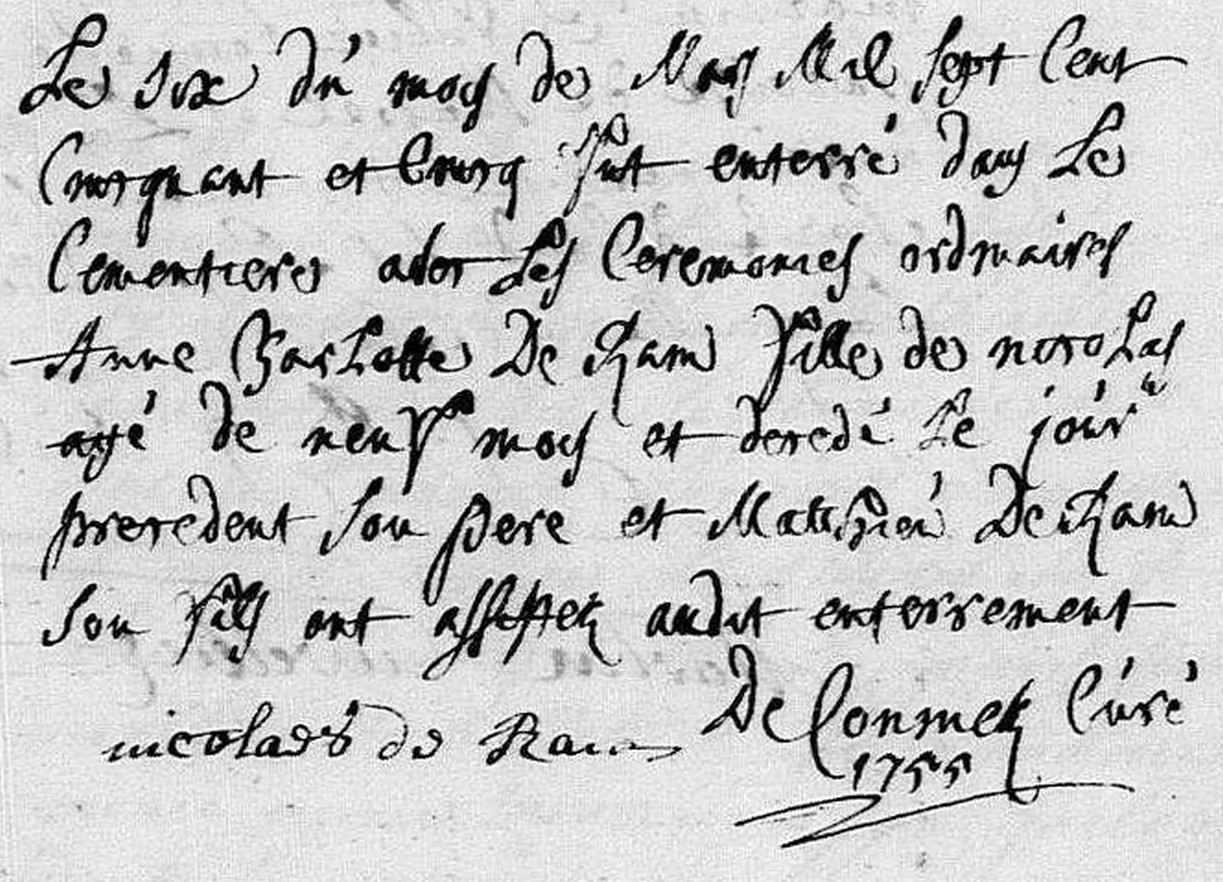 Le six du mois de Mars Mil sept Cent
Cinquant et Cinq fut enterré dans Le
Cementiere avec Les Ceremonies ordinaires
Anne Charlotte De Ram fille de nicolas
agé de neuf mois et decedé Le jour
precedent son pere et Matthieu De Ram
son fils ont assistez audit enterrement
nicolaes de Ram De Conninck Curé
1755